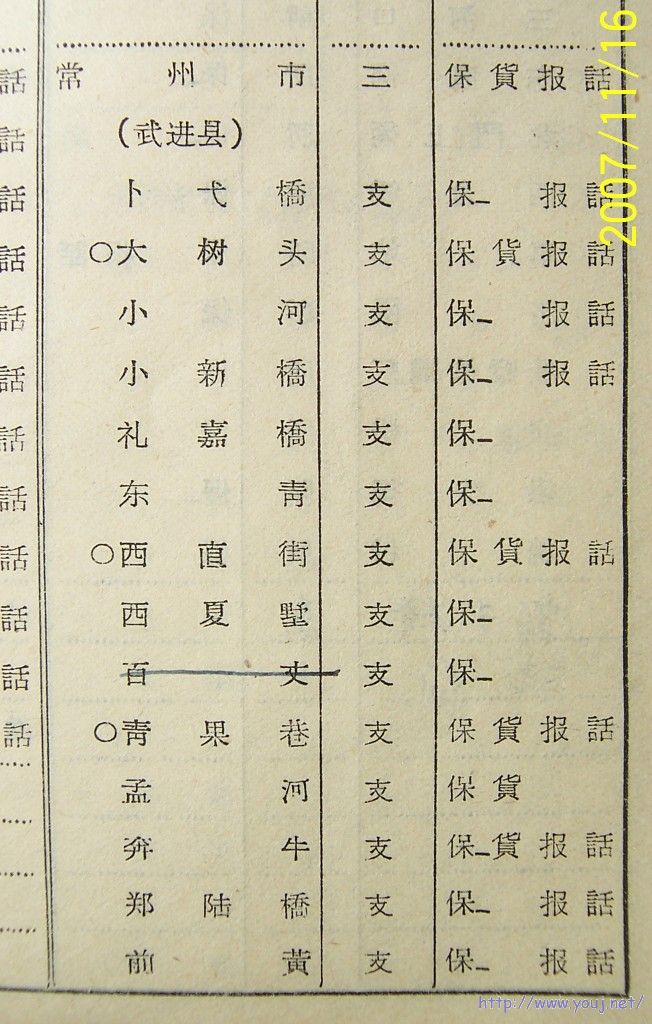 常州市 三 保貨报話
(武进县)
卜弋橋 支 保_ 报話
○大树头 支 保貨报話
小河 支 保_ 报話
小新橋 支 保_ 报話
礼嘉橋 支 保_
东青 支 保_
○西直街 支 保貨报話
西夏墅 支 保_
百丈 支 保_
○青果巷 支 保貨报話
孟河 支 保貨
奔牛 支 保_貨报話
郑陆橋 支 保_ 报話
前黃 支 保_ 报話
話
話
話
話
話
話
話
話
話
話
話
話
2007/11/16
http://www.youj.net/